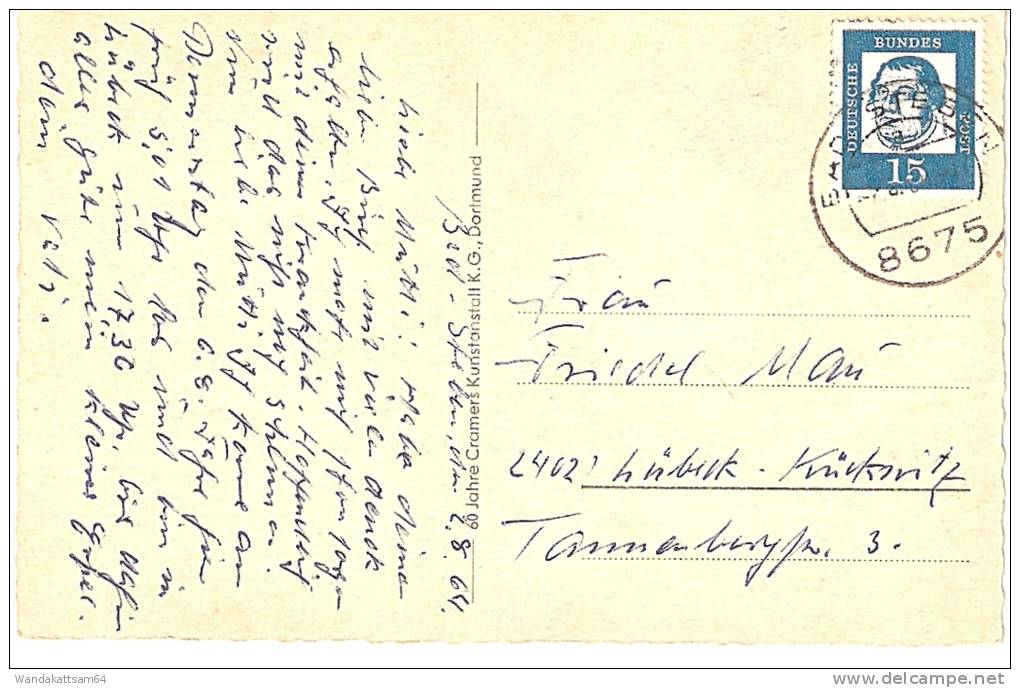 Bad-Steben, den 2.8.64.
Liebe Mutti! Habe deinen
lieben Brief mit vielen Dank
erhalten.
mit deine Krankheit. Hoffentlich
wird das nicht noch schlimmer.
Nun liebe Mutti ich komme am
Donnerstag den 6.8. fahre hier
früh 5,01 Uhr los und bin in
Lübeck um 17,30 Uhr. bis dahin
alles gute mein kleine
dein Vati.
60 Jahre Cramers Kunstanstalt K.G., Dortmund
DEUTSCHE
BUNDES
POST
15
BAD STEBEN
8675
Frau
Friedel Mau
2402 Lübeck-Kücknitz
Tannenbergstr. 3.
Wandakattsam64
delcampe.net